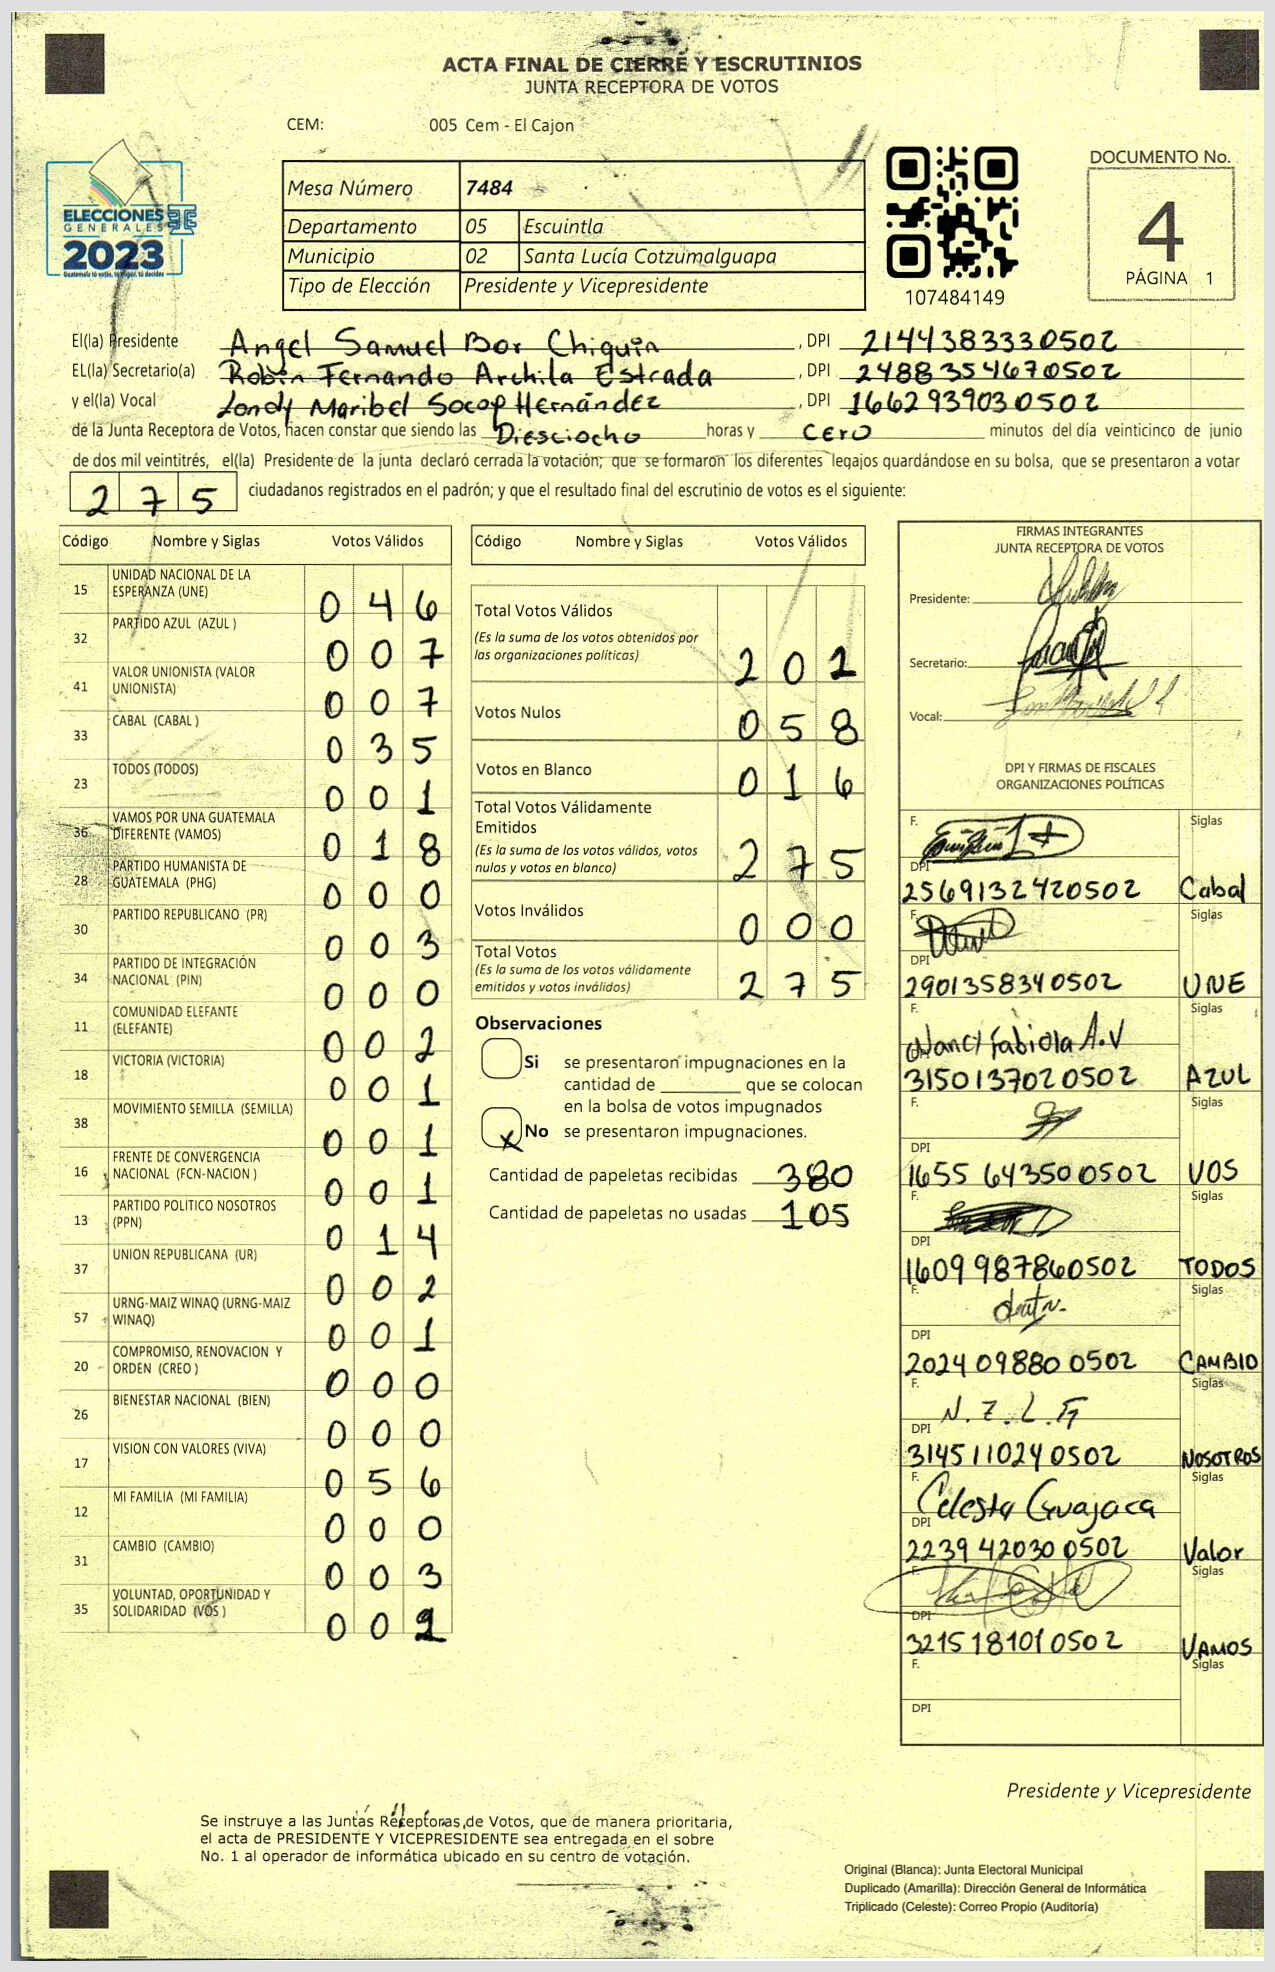 ACTA FINAL DE CIERRE Y ESCRUTINIOS
JUNTA RECEPTORA DE VOTOS
CEM: 005 Cem - El Cajon
ELECCIONES
GENERALES
2023
Guatemala tú votas, tú eliges, tú decides
Mesa Número 7484
Departamento 05 Escuintla
Municipio 02 Santa Lucía Cotzumalguapa
Tipo de Elección Presidente y Vicepresidente
107484149
DOCUMENTO No.
4
PÁGINA 1
El(la) Presidente Angel Samuel Bor Chiquin , DPI 2144383330502
EL(la) Secretario(a) Robin Fernando Archila Estrada , DPI 2488354670502
y el(la) Vocal Londy Maribel Socop Hernández , DPI 1662939030502
de la Junta Receptora de Votos, hacen constar que siendo las Diesciocho horas y cero minutos del día veinticinco de junio
de dos mil veintitrés, el(la) Presidente de la junta declaró cerrada la votación; que se formaron los diferentes legajos guardándose en su bolsa, que se presentaron a votar
275 ciudadanos registrados en el padrón; y que el resultado final del escrutinio de votos es el siguiente:
Código Nombre y Siglas Votos Válidos
15 UNIDAD NACIONAL DE LA ESPERANZA (UNE) 046
32 PARTIDO AZUL (AZUL ) 007
41 VALOR UNIONISTA (VALOR UNIONISTA) 007
33 CABAL (CABAL ) 035
23 TODOS (TODOS) 001
36 VAMOS POR UNA GUATEMALA DIFERENTE (VAMOS) 018
28 PARTIDO HUMANISTA DE GUATEMALA (PHG) 000
30 PARTIDO REPUBLICANO (PR) 003
34 PARTIDO DE INTEGRACIÓN NACIONAL (PIN) 000
11 COMUNIDAD ELEFANTE (ELEFANTE) 002
18 VICTORIA (VICTORIA) 001
38 MOVIMIENTO SEMILLA (SEMILLA) 001
16 FRENTE DE CONVERGENCIA NACIONAL (FCN-NACION ) 001
13 PARTIDO POLITICO NOSOTROS (PPN) 014
37 UNION REPUBLICANA (UR) 002
57 URNG-MAIZ WINAQ (URNG-MAIZ WINAQ) 001
20 COMPROMISO, RENOVACION Y ORDEN (CREO ) 000
26 BIENESTAR NACIONAL (BIEN) 000
17 VISION CON VALORES (VIVA) 056
12 MI FAMILIA (MI FAMILIA) 000
31 CAMBIO (CAMBIO) 003
35 VOLUNTAD, OPORTUNIDAD Y SOLIDARIDAD (VOS ) 00
Código Nombre y Siglas Votos Válidos
Total Votos Válidos
(Es la suma de los votos obtenidos por
las organizaciones políticas) 202
Votos Nulos 058
Votos en Blanco 016
Total Votos Válidamente
Emitidos
(Es la suma de los votos válidos, votos
nulos y votos en blanco) 275
Votos Inválidos 000
Total Votos
(Es la suma de los votos válidamente
emitidos y votos inválidos) 275
Observaciones
Si se presentaron impugnaciones en la
cantidad de ________ que se colocan
en la bolsa de votos impugnados
x No se presentaron impugnaciones.
Cantidad de papeletas recibidas 380
Cantidad de papeletas no usadas 105
FIRMAS INTEGRANTES
JUNTA RECEPTORA DE VOTOS
Presidente:
Secretario:
Vocal:
DPI Y FIRMAS DE FISCALES
ORGANIZACIONES POLÍTICAS
F. Siglas
DPI
2569132420502 Cabal
F. Siglas
DPI
2901358340502 UNE
F. Siglas
Nancy Fabiola A.V
DPI
3150137020502 AZUL
F. Siglas
DPI
1655 643500502 VOS
F. Siglas
DPI
1609987860502 TODOS
F. Siglas
DPI
2024 09880 0502 CAMBIO
F. Siglas
N.Z.L.G
DPI
3145110240502 NOSOTROS
F. Siglas
Celeste Guajaca
DPI
2239 42030 0502 Valor
F. Siglas
DPI
3215181010502 VAMOS
F. Siglas
DPI
Presidente y Vicepresidente
Se instruye a las Juntas Receptoras de Votos, que de manera prioritaria,
el acta de PRESIDENTE Y VICEPRESIDENTE sea entregada en el sobre
No. 1 al operador de informática ubicado en su centro de votación.
Original (Blanca): Junta Electoral Municipal
Duplicado (Amarilla): Dirección General de Informática
Triplicado (Celeste): Correo Propio (Auditoría)